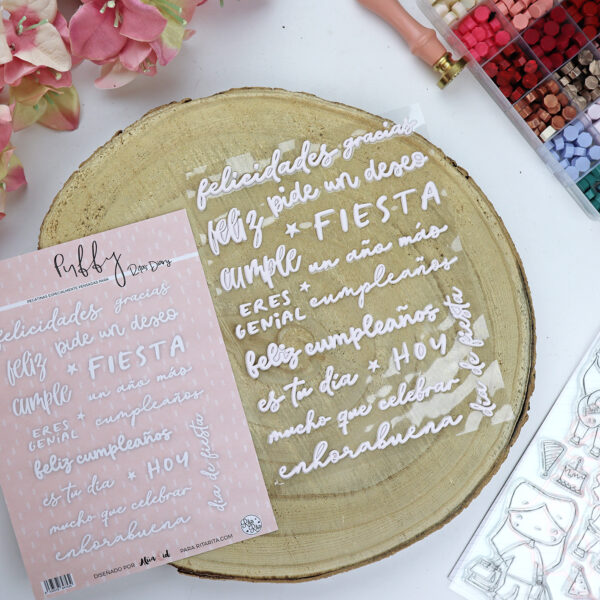 felicidades gracias
feliz pide un deseo
★ FIESTA
cumple un año más
ERES ★ cumpleaños
GENIAL
feliz cumpleaños
es tu día ★ HOY
mucho que celebrar
día de fiesta
enhorabuena
Puffy
Ritas Diary
PEGATINAS ESPECIALMENTE PENSADAS PARA
felicidades gracias
feliz pide un deseo
★ FIESTA
cumple un año más
ERES ★ cumpleaños
GENIAL
feliz cumpleaños
es tu día ★ HOY
mucho que celebrar
día de fiesta
enhorabuena
DISEÑADO POR
PARA RITARITA.COM